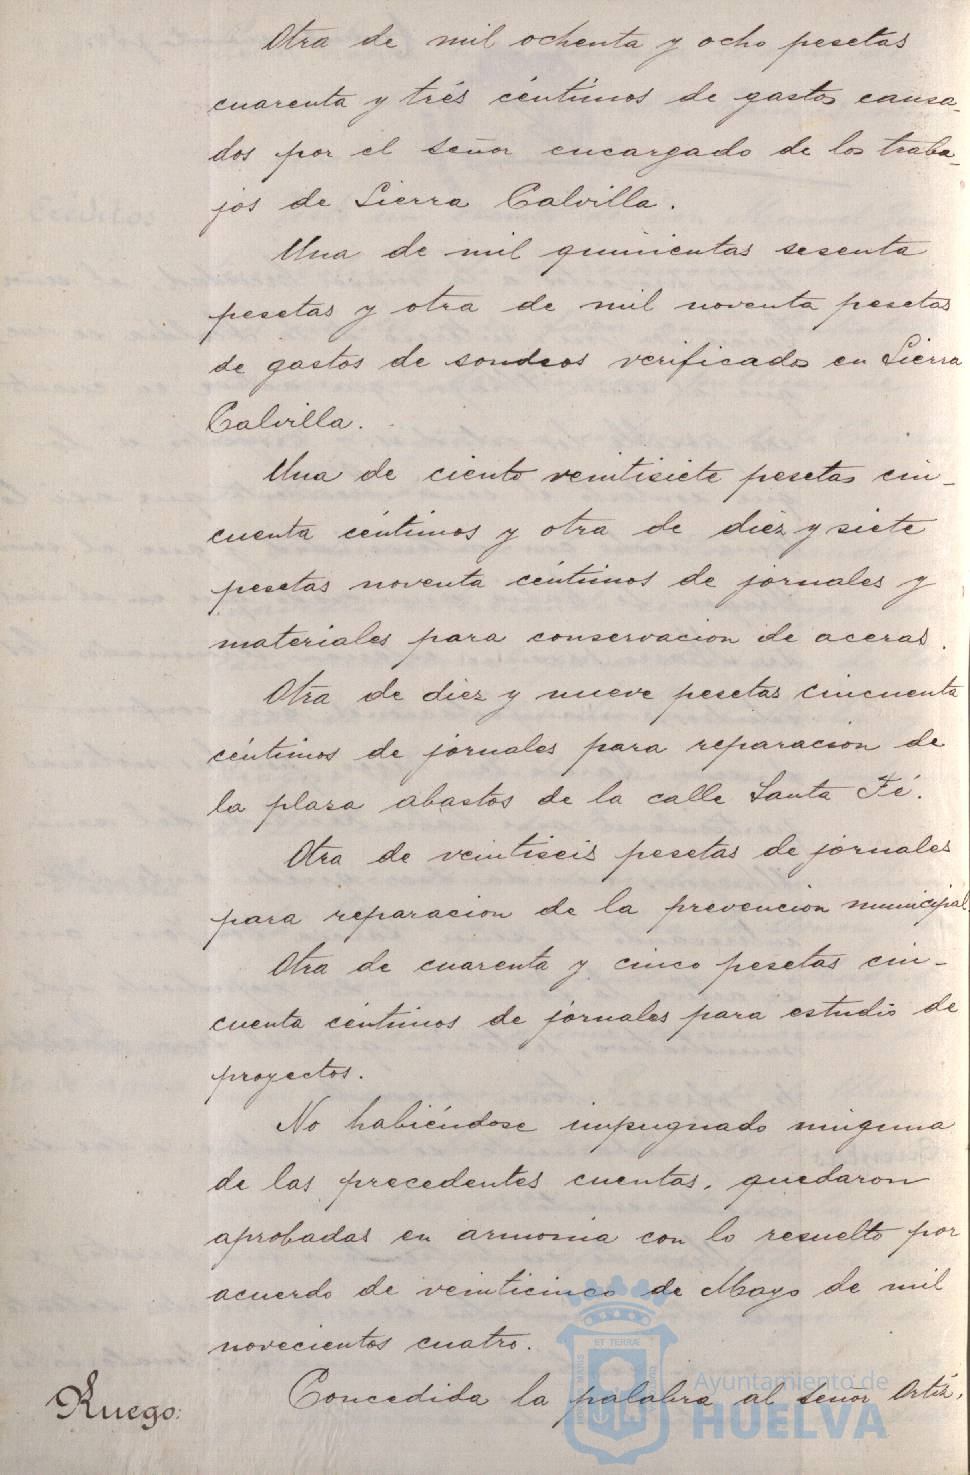 Otra de mil ochenta y ocho pesetas
cuarenta y trés céntimos de gastos causa-
dos por el señor encargado de los traba-
jos de Sierra Calvilla.
Una de mil quinientas sesenta
pesetas y otra de mil noventa pesetas
de gastos de sondeos verificados en Sierra
Calvilla.
Una de ciento veintisiete pesetas cin-
cuenta céntimos y otra de diez y siete
pesetas noventa céntimos de jornales y
materiales para conservacion de aceras.
Otra de diez y nueve pesetas cincuenta
céntimos de jornales para reparacion de
la plaza abastos de la calle Santa Fé.
Otra de veintiseis pesetas de jornales
para reparacion de la prevencion municipal.
Otra de cuarenta y cinco pesetas cin-
cuenta céntimos de jornales para estudio de
proyectos.
No habiéndose impugnado ninguna
de las precedentes cuentas, quedaron
aprobadas en armonia con lo resuelto por
acuerdo de veinticinco de Mayo de mil
novecientos cuatro.
Ruego: Concedida la palabra al señor
Ayuntamiento de
HUELVA